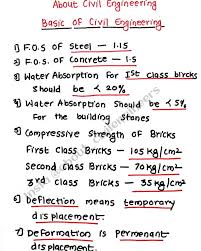 About Civil Engineering
Basic of Civil Engineering
1) F.O.S of Steel - 1.15
2) F.O.S of Concrete - 1.5
3) Water Absorption For 1st class bricks
Should be < 20%
4) Water Absorption Should be < 5%
For the building Stones
5) Compressive Strength of Bricks
First Class Bricks - 105 kg/cm²
Second Class Bricks - 70 kg/cm²
3rd Class Bricks - 35 kg/cm²
6) Deflection means temporary
displacement.
7) Deformation is Permenant
displacement.